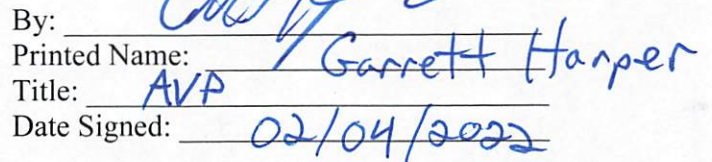 By:
Printed Name: Garrett Harper
Title: AVP
Date Signed: 02/04/2022